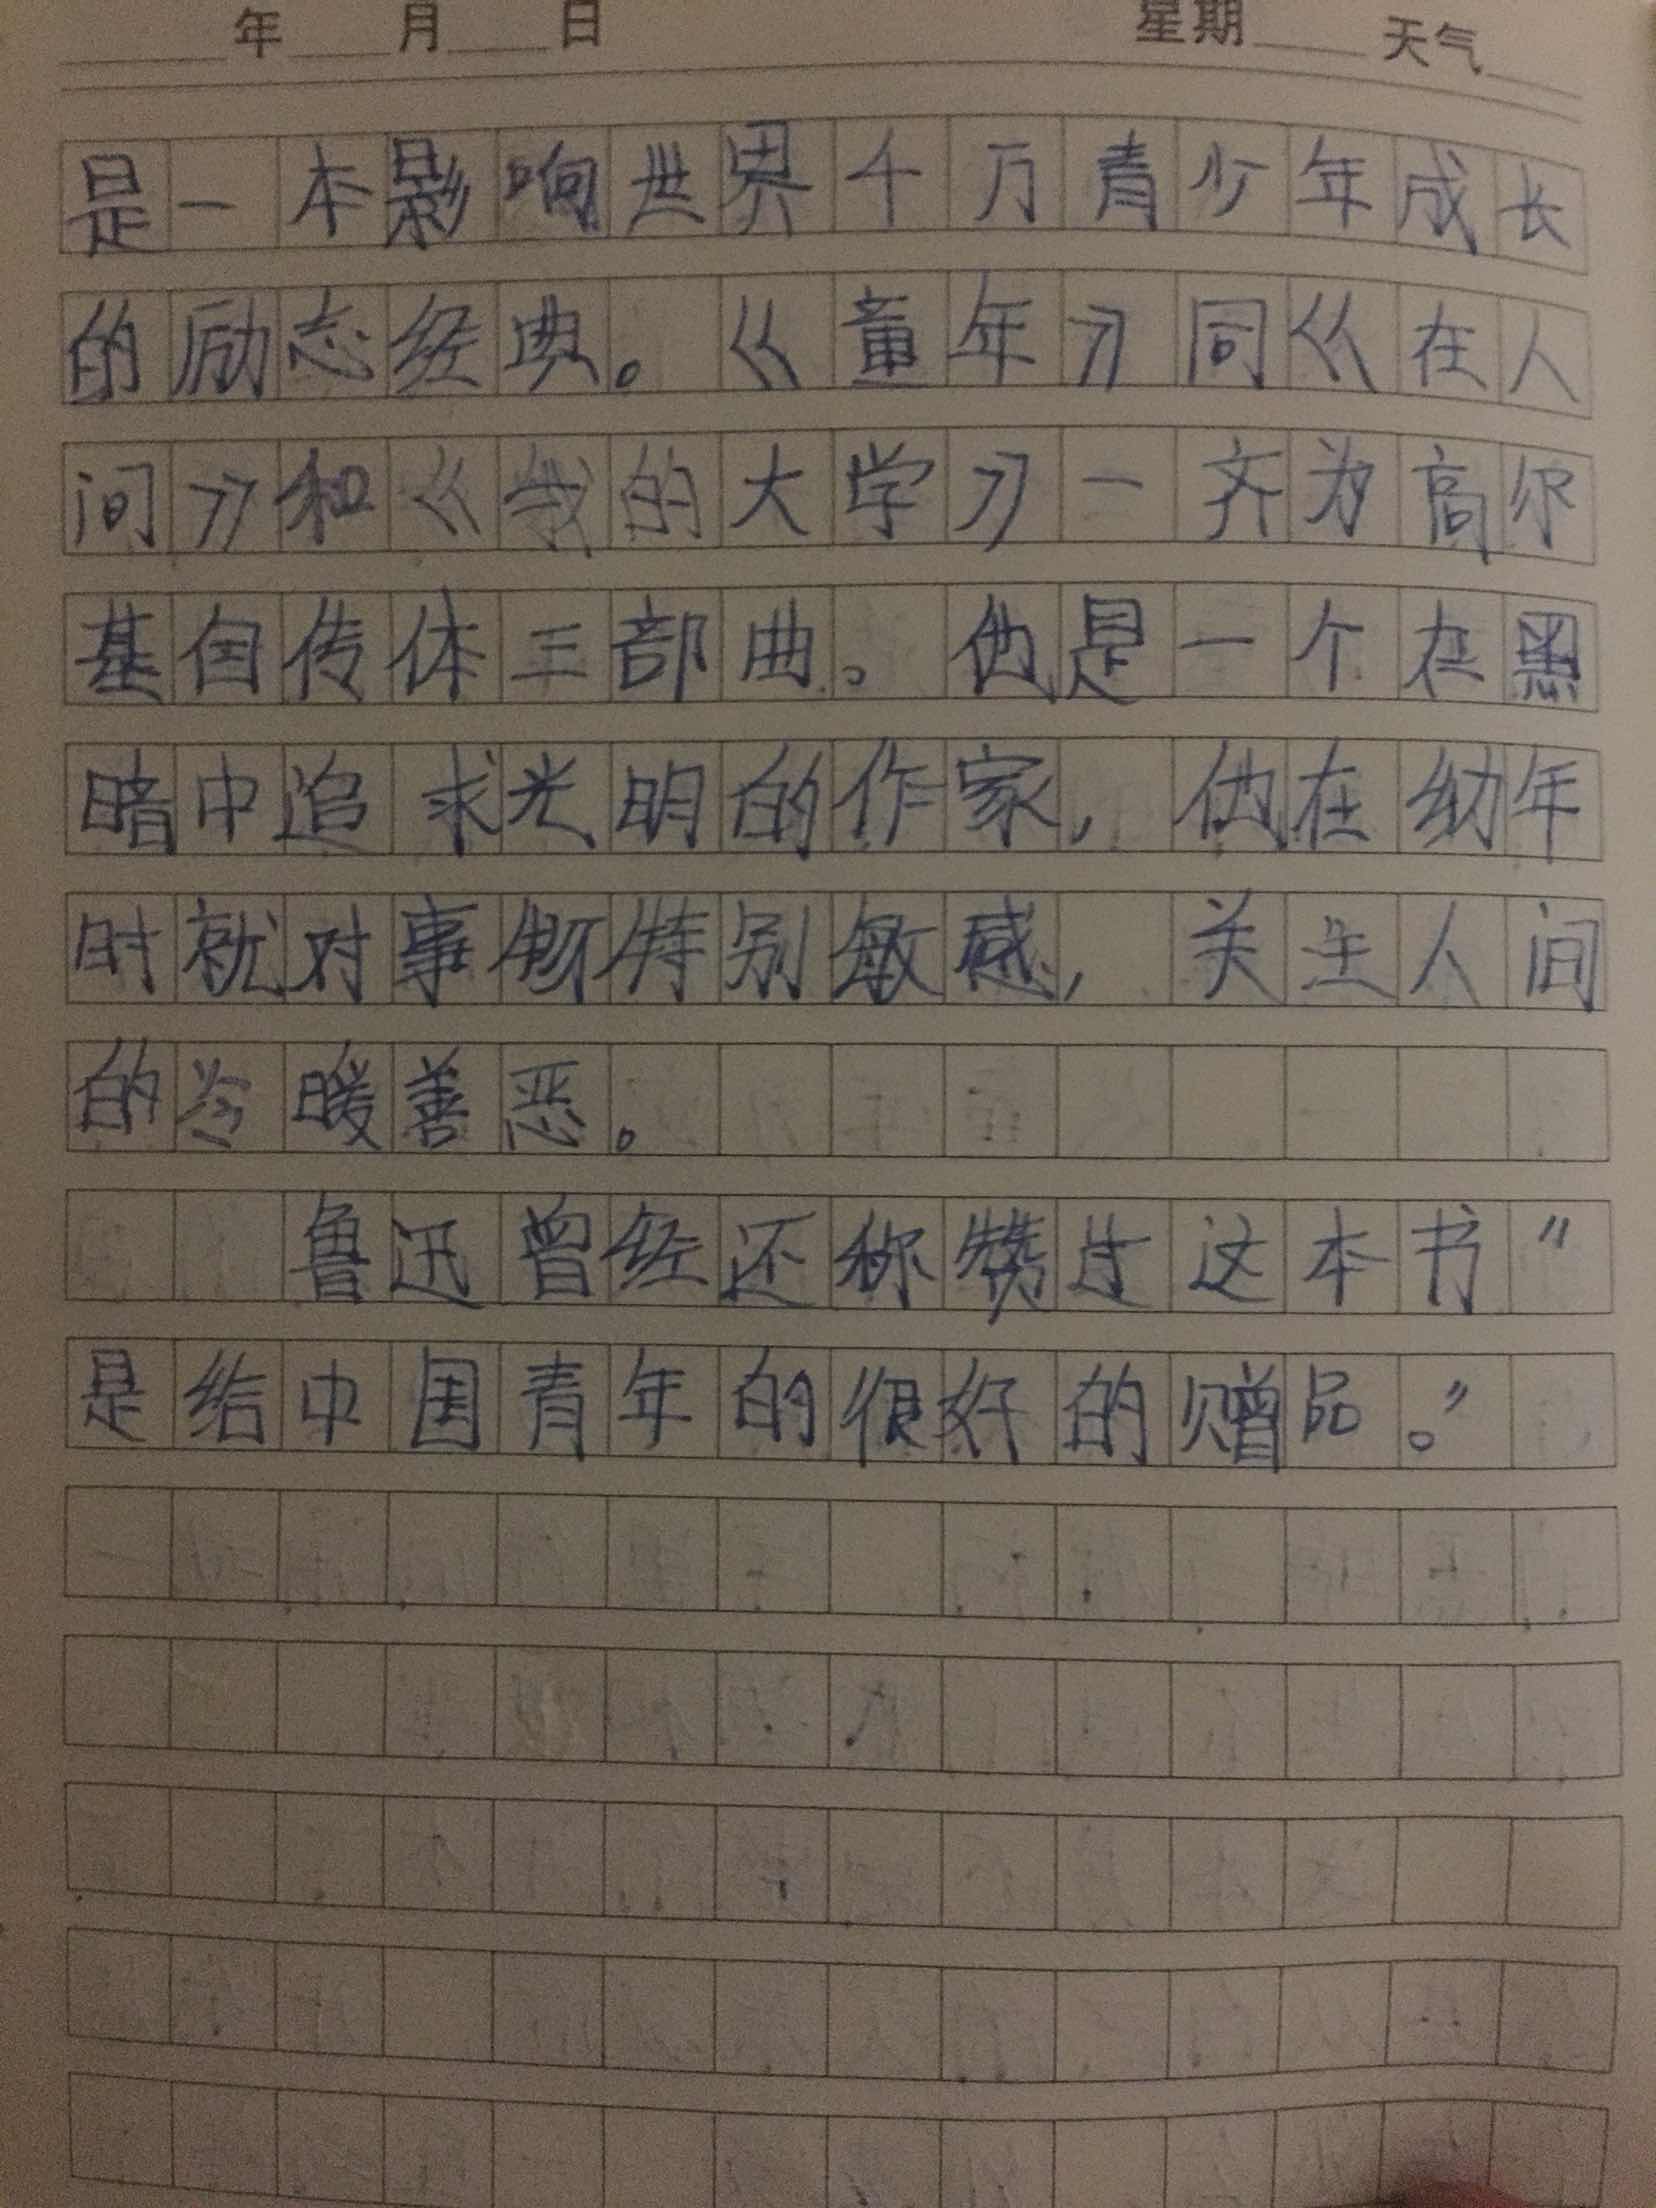 年 月 日 星期 天气
是一本影响世界千万青少年成长
的励志经典。《童年》同《在人
间》和《我的大学》一齐为高尔
基自传体三部曲。他是一个在黑
暗中追求光明的作家，他在幼年
时就对事物特别敏感，关注人间
的冷暖善恶。
鲁迅曾经还称赞过这本书"
是给中国青年的很好的赠品。"